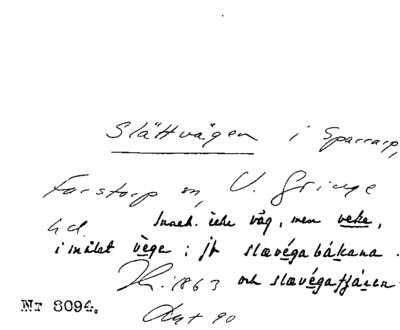 Slättvägen i Sparrarp,
Farstorp sn, V. Göinge
hd. Inneh. icke väg, men veke,
i målet vèga; jfr slævéga bákana.
1863 och slævéga fjären
Nr 8094.